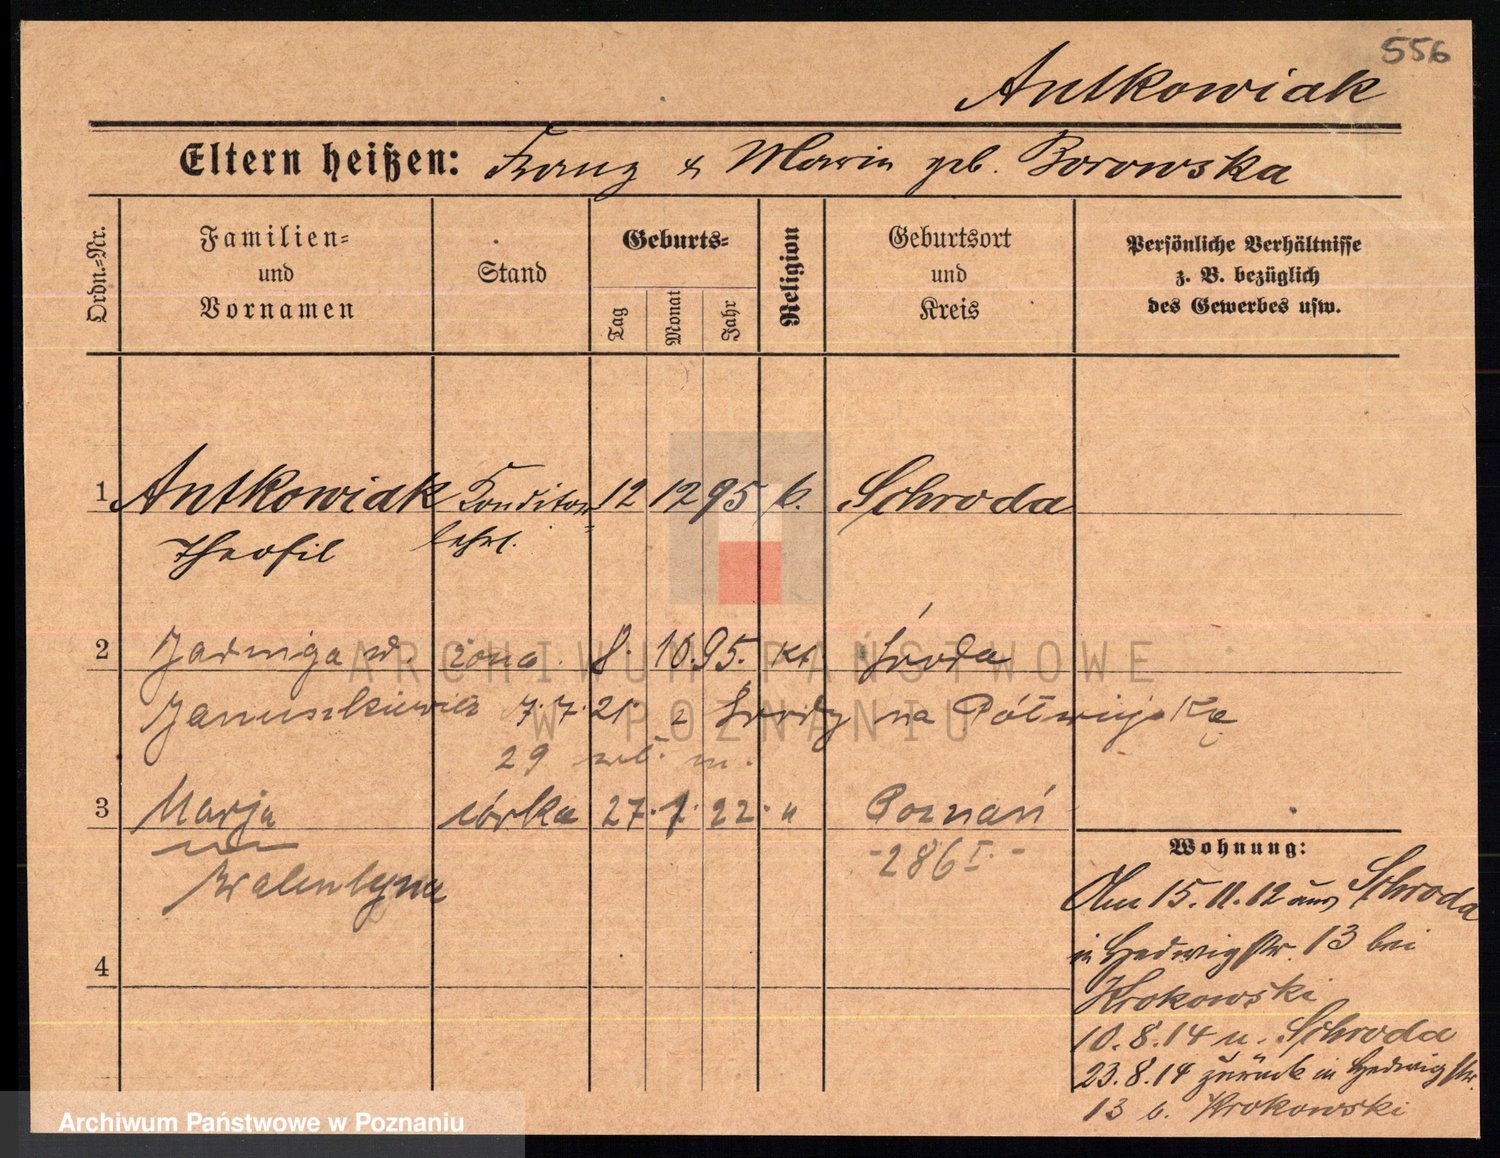 556
Antkowiak
Eltern heißen: Franz & Maria geb. Borowska
Ordn.=Nr.
Familien=
und
Vornamen
Stand
Geburts=
Tag
Monat
Jahr
Religion
Geburtsort
und
Kreis
Persönliche Verhältnisse
z. B. bezüglich
des Gewerbes usw.
1 Antkowiak Konditor= 12 12 95 k. Schroda
Theofil lehrl.
2 Jadwiga żona 8. 10. 95. kt Środa
Januszkiewicz 7.7.21. z Środy na Półwiejską
29 m.
3 Marja córka 27. 1. 22. " Poznań
Walentyna -286 I.-
4
Wohnung:
Am 15.11.12 aus Schroda
in Hedwigstr. 13 bei
Krokowski
10.8.14 n. Schroda
23.8.14 zurück in Hedwigstr.
13 b. Krokowski
ARCHIWUM PAŃSTWOWE
W POZNANIU
Archiwum Państwowe w Poznaniu